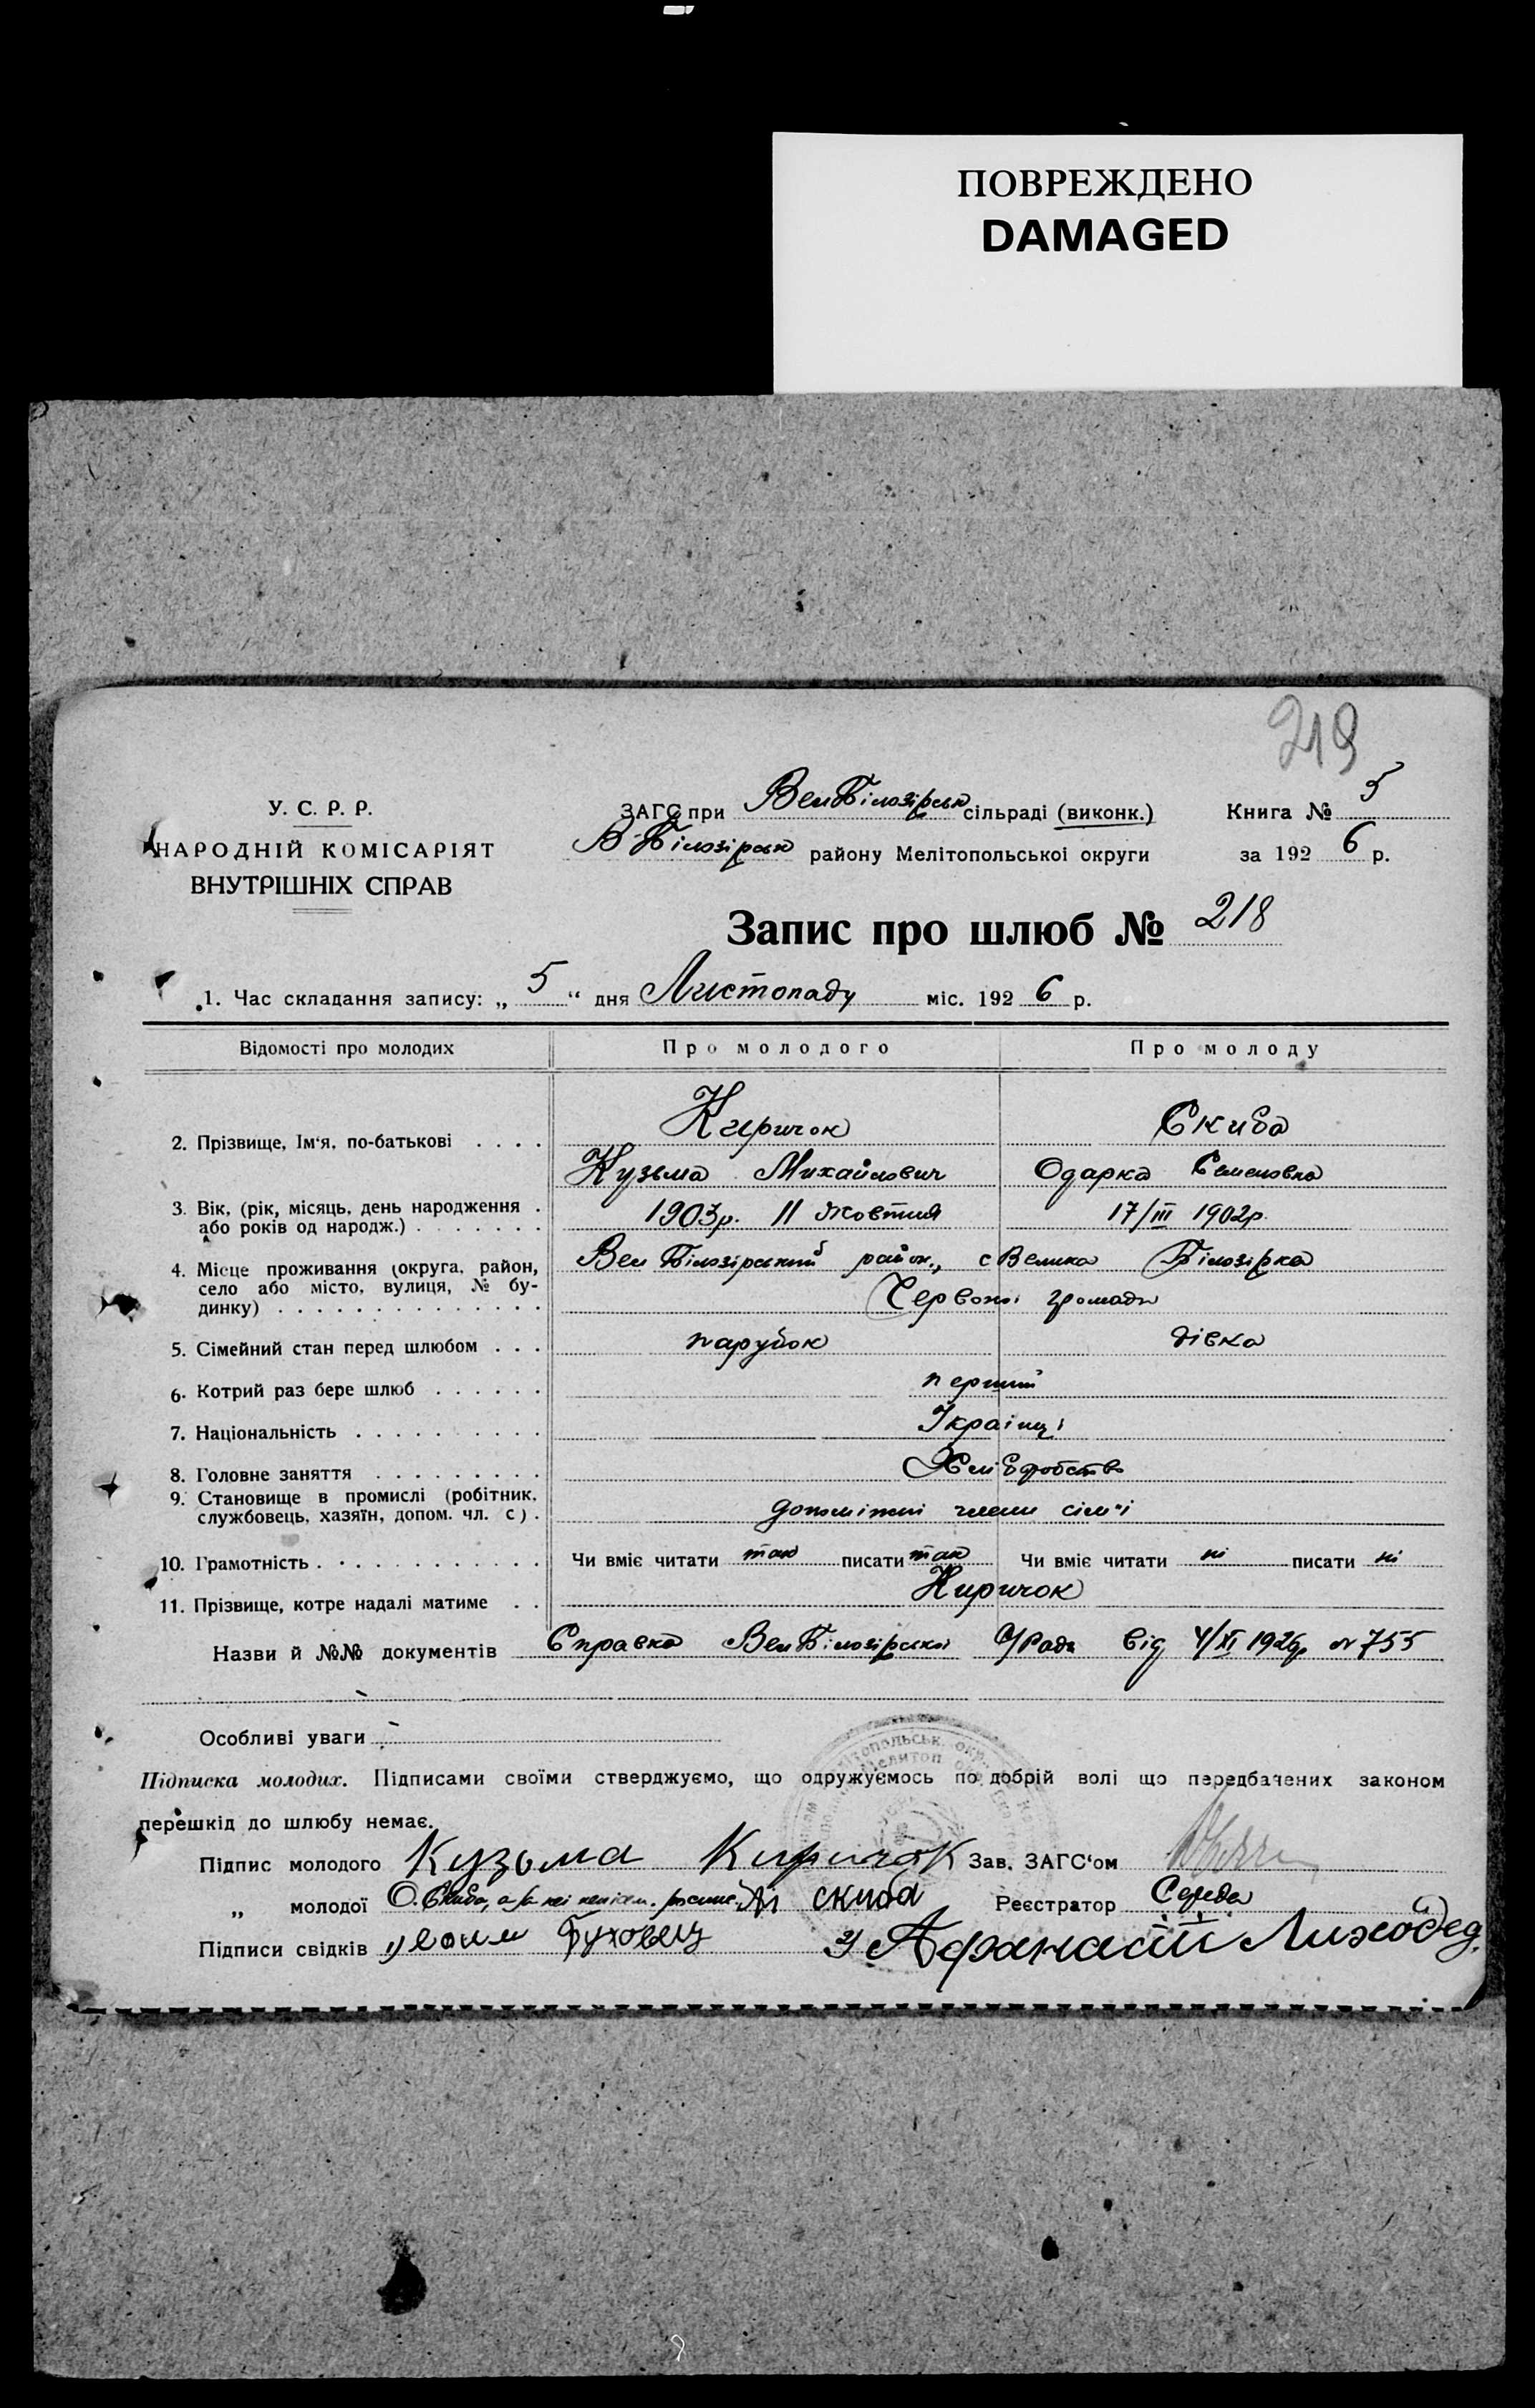 ПОВРЕЖДЕНО
DAMAGED
219
У. С. Р. Р.
НАРОДНІЙ КОМІСАРІЯТ
ВНУТРІШНІХ СПРАВ
ЗАГС при ВелБілозірськ сільраді (виконк.)
В-Білозірськ району Мелітопольської округи
Книга № 5
за 1926 р.
Запис про шлюб № 218
1. Час складання запису: „5“ дня Листопаду міс. 1926 р.
Відомості про молодих Про молодого Про молоду
Киричок Скиба
2. Прізвище, Ім‘я, по-батькові . . . .
Кузьма Михайлович Одарка Семеновна
3. Вік, (рік, місяць, день народження .
або років од народж.) . . . . . . . 1903р. 11 жовтня 17/III 1902р.
4. Місце проживання (округа, район, Вел Білозірський район, с Велика Білозірка
село або місто, вулиця, № бу-
динку) . . . . . . . . . . . . . . Червоної громади
5. Сімейний стан перед шлюбом . . . парубок дівка
6. Котрий раз бере шлюб . . . . . . перший
7. Національність . . . . . . . . . . Українці
8. Головне заняття . . . . . . . . . Хліборобство
9. Становище в промислі (робітник,
службовець, хазяїн, допом. чл. с) . допоміжні члени сім'ї
10. Грамотність . . . . . . . . . . . . Чи вміє читати так писати так Чи вміє читати ні писати ні
11. Прізвище, котре надалі матиме . . Киричок
Назви й №№ документів Справка ВелБілозірської С/Ради від 4/XI 1926р № 755
Особливі уваги
Підписка молодих. Підписами своїми стверджуємо, що одружуємось по добрій волі що передбачених законом
перешкід до шлюбу немає.
Підпис молодого Кузьма Киричок Зав. ЗАГС‘ом
„ молодої О. Скиба, а за неі скиба Реєстратор Середа
Підписи свідків Буховец 2) Афанасій Лиходед